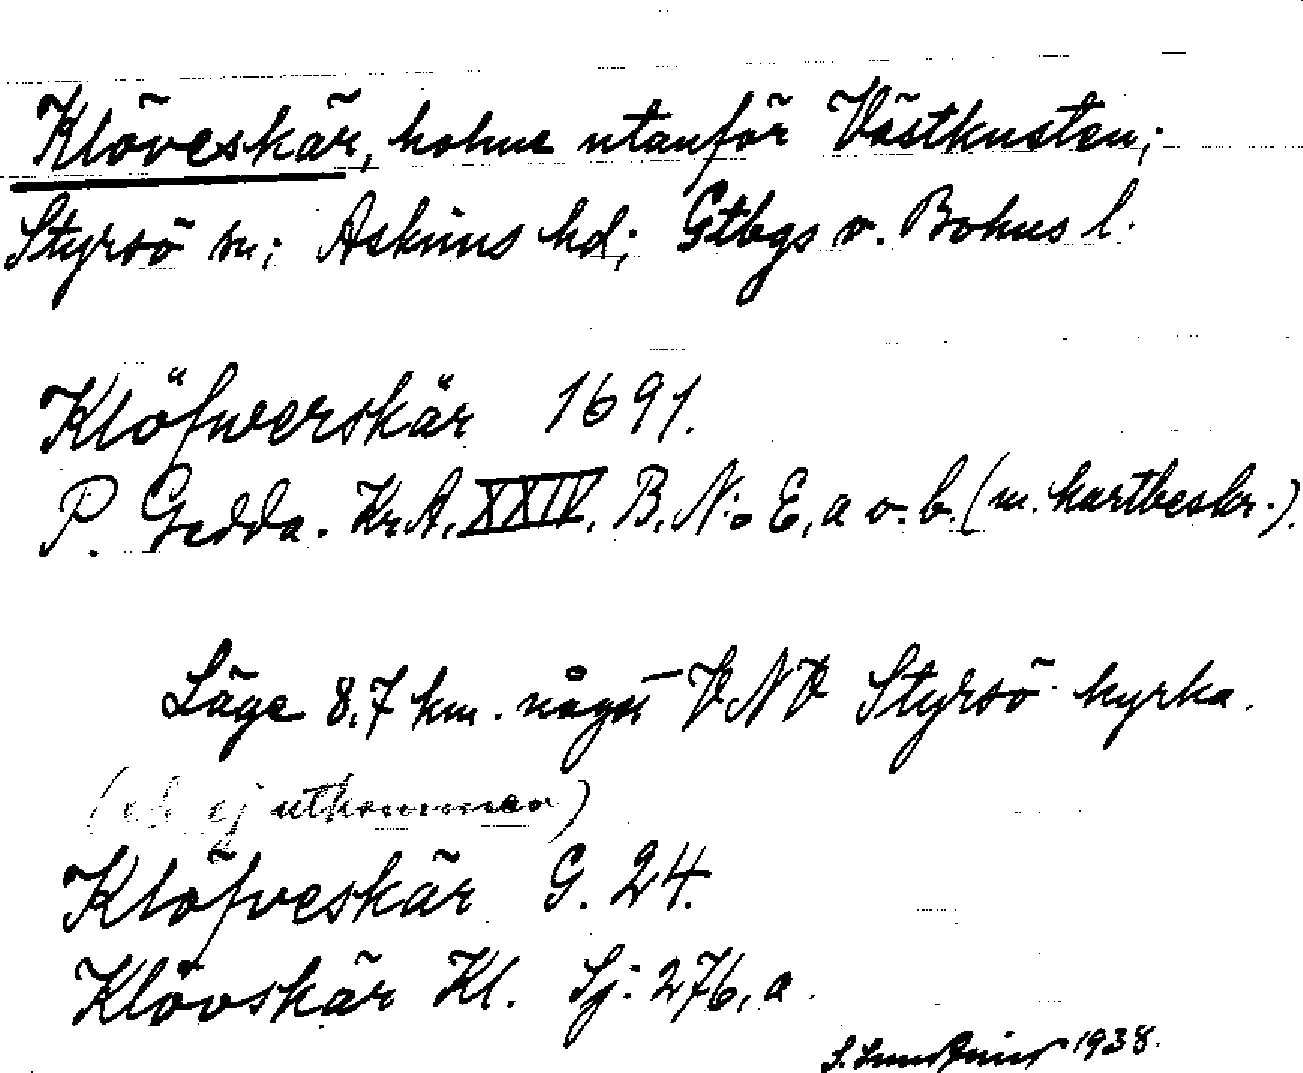 Klöveskär, holme utanför Västkusten;
Styrsö sn; Askims hd; Gtbgs o. Bohus l.
Klöfwerskär 1691.
P. Gedda. Kr.A. XXIV. B. N:o E, a o. b. (m. kartbeskr.).
Läge 8,7 km. något VNV Styrsö kyrka.
(ek ej utkommen)
Klöfveskär G. 24.
Klövskär Kl. Sj: 276, a.
1938.